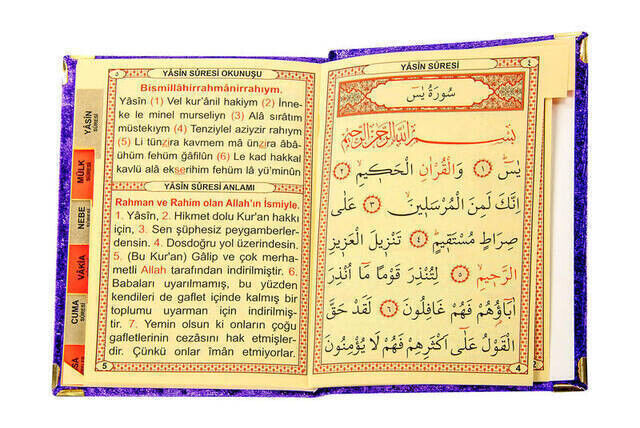 ٥ YÂSİN SÛRESİ OKUNUŞU
Bismillâhirrahmânirrahıym.
Yâsîn (1) Vel kur'ânil hakiym (2) İnne-
ke le minel murseliyn (3) Alâ sırâtım
müstekıym (4) Tenziylel aziyzir rahıym
(5) Li tünzira kavmem mâ ünzira âbâ-
ühüm fehüm ğâfilûn (6) Le kad hakkal
kavlü alâ ekserihim fehüm lâ yü'minûn
YÂSİN SÛRESİ ANLAMI
Rahman ve Rahim olan Allah'ın İsmiyle.
1. Yâsîn, 2. Hikmet dolu Kur'an hakkı
için, 3. Sen şüphesiz peygamberler-
densin. 4. Dosdoğru yol üzerindesin.
5. (Bu Kur'an) Gâlip ve çok merha-
metli Allah tarafından indirilmiştir. 6.
Babaları uyarılmamış, bu yüzden
kendileri de gaflet içinde kalmış bir
toplumu uyarman için indirilmiş-
tir. 7. Yemin olsun ki onların çoğu
gafletlerinin cezasını hak etmişler-
dir. Çünkü onlar îman etmiyorlar.
5
YÂSİN
SÛRESİ
MÜLK
SÛRESİ
NEBE
SÛRESİ
VÂKIA
SÛRESİ
CUMA
SÛRESİ
YÂSİN SÛRESİ ٤
سُورَةُ يٰسٓ
بِسْمِ اللّٰهِ الرَّحْمٰنِ الرَّحِيمِ
يٰسٓ ١ وَالْقُرْاٰنِ الْحَكِيمِ ٢
اِنَّكَ لَمِنَ الْمُرْسَلِينَ ٣ عَلٰى
صِرَاطٍ مُسْتَقِيمٍ ٤ تَنْزِيلَ الْعَزِيزِ
الرَّحِيمِ ٥ لِتُنْذِرَ قَوْمًا مَٓا اُنْذِرَ
اٰبَٓاؤُ۬هُمْ فَهُمْ غَافِلُونَ ٦ لَقَدْ حَقَّ
الْقَوْلُ عَلٰٓى اَكْثَرِهِمْ فَهُمْ لَا يُؤْمِنُونَ
4